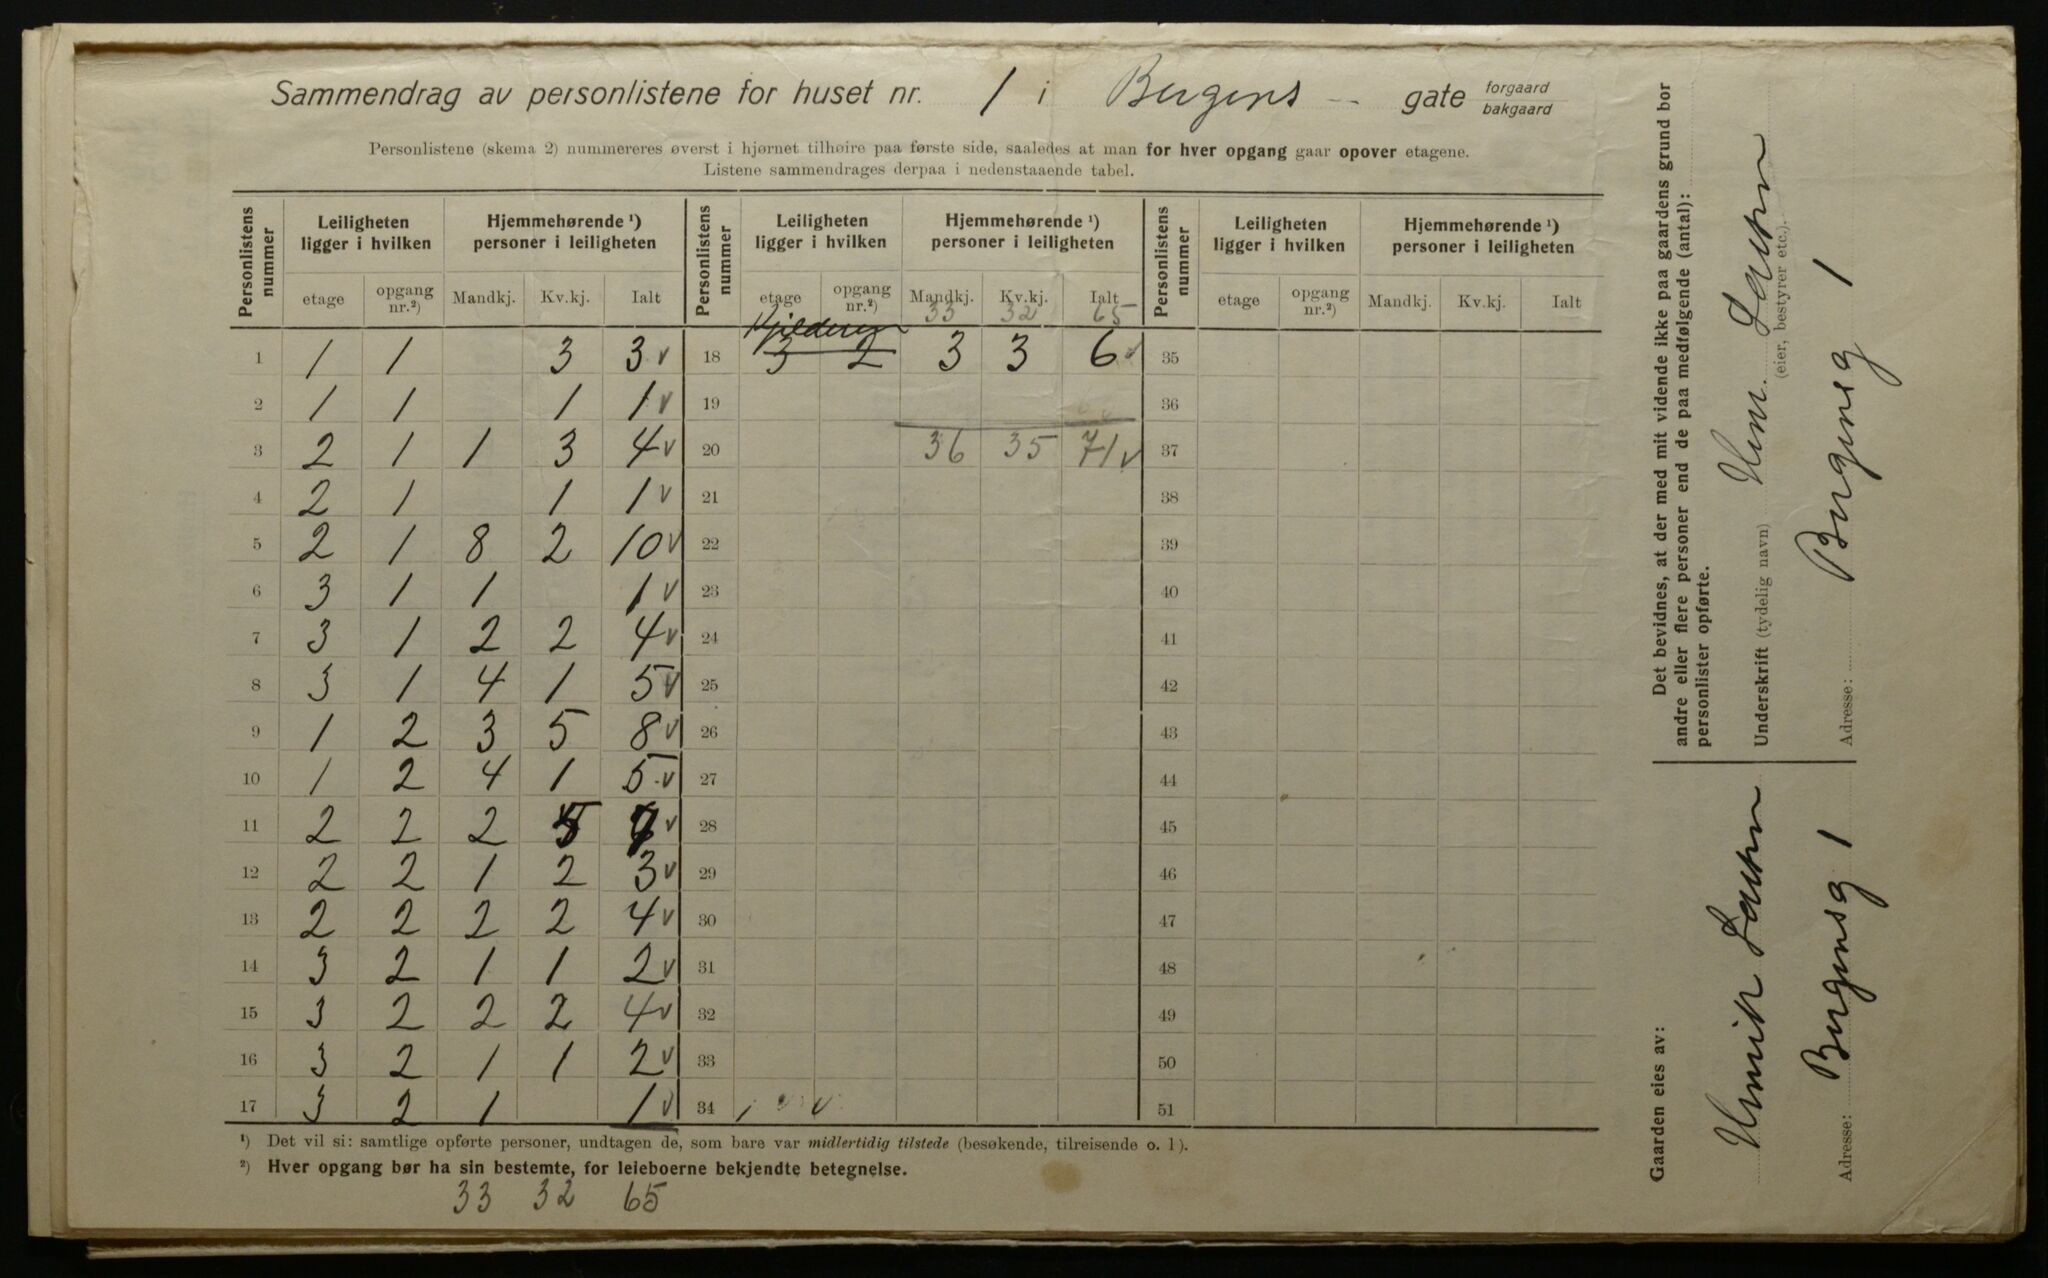 Sammendrag av personlistene for huset nr. 1 i Bergens gate forgaard bakgaard
Personlistene (skema 2) nummereres øverst i hjørnet tilhøire paa første side, saaledes at man for hver opgang gaar opover etagene.
Listene sammendrages derpaa i nedenstaaende tabel.
Personlistens nummer Leiligheten ligger i hvilken Hjemmehørende ¹) personer i leiligheten Personlistens nummer Leiligheten ligger i hvilken Hjemmehørende ¹) personer i leiligheten Personlistens nummer Leiligheten ligger i hvilken Hjemmehørende ¹) personer i leiligheten
etage opgang nr.²) Mandkj. Kv.kj. Ialt etage opgang nr.²) Mandkj. Kv.kj. Ialt etage opgang nr.²) Mandkj. Kv.kj. Ialt
33 32 65
1 1 1 3 3 v 18 3 2 3 3 6 v 35
2 1 1 1 1 v 19 36
3 2 1 1 3 4 v 20 36 35 71 v 37
4 2 1 1 1 v 21 38
5 2 1 8 2 10 v 22 39
6 3 1 1 1 v 23 40
7 3 1 2 2 4 v 24 41
8 3 1 4 1 5 v 25 42
9 1 2 3 5 8 v 26 43
10 1 2 4 1 5 v 27 44
11 2 2 2 5 7 v 28 45
12 2 2 1 2 3 v 29 46
13 2 2 2 2 4 v 30 47
14 3 2 1 1 2 v 31 48
15 3 2 2 2 4 v 32 49
16 3 2 1 1 2 v 33 50
17 3 2 1 1 v 34 51
¹) Det vil si: samtlige opførte personer, undtagen de, som bare var midlertidig tilstede (besøkende, tilreisende o. l).
²) Hver opgang bør ha sin bestemte, for leieboerne bekjendte betegnelse.
33 32 65
Det bevidnes, at der med mit vidende ikke paa gaardens grund bor
andre eller flere personer end de paa medfølgende (antal):
personlister opførte.
Underskrift (tydelig navn)
(eier, bestyrer etc.).
Adresse: Bergensg 1
Gaarden eies av:
Adresse: Bergensg 1